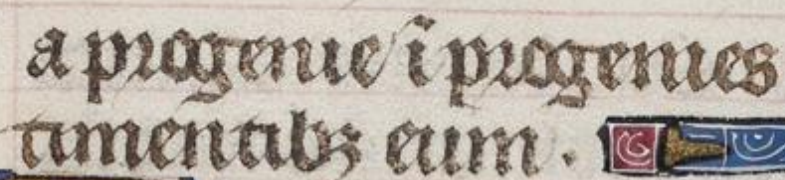 a progenie ī progenies
timentibꝫ eum .